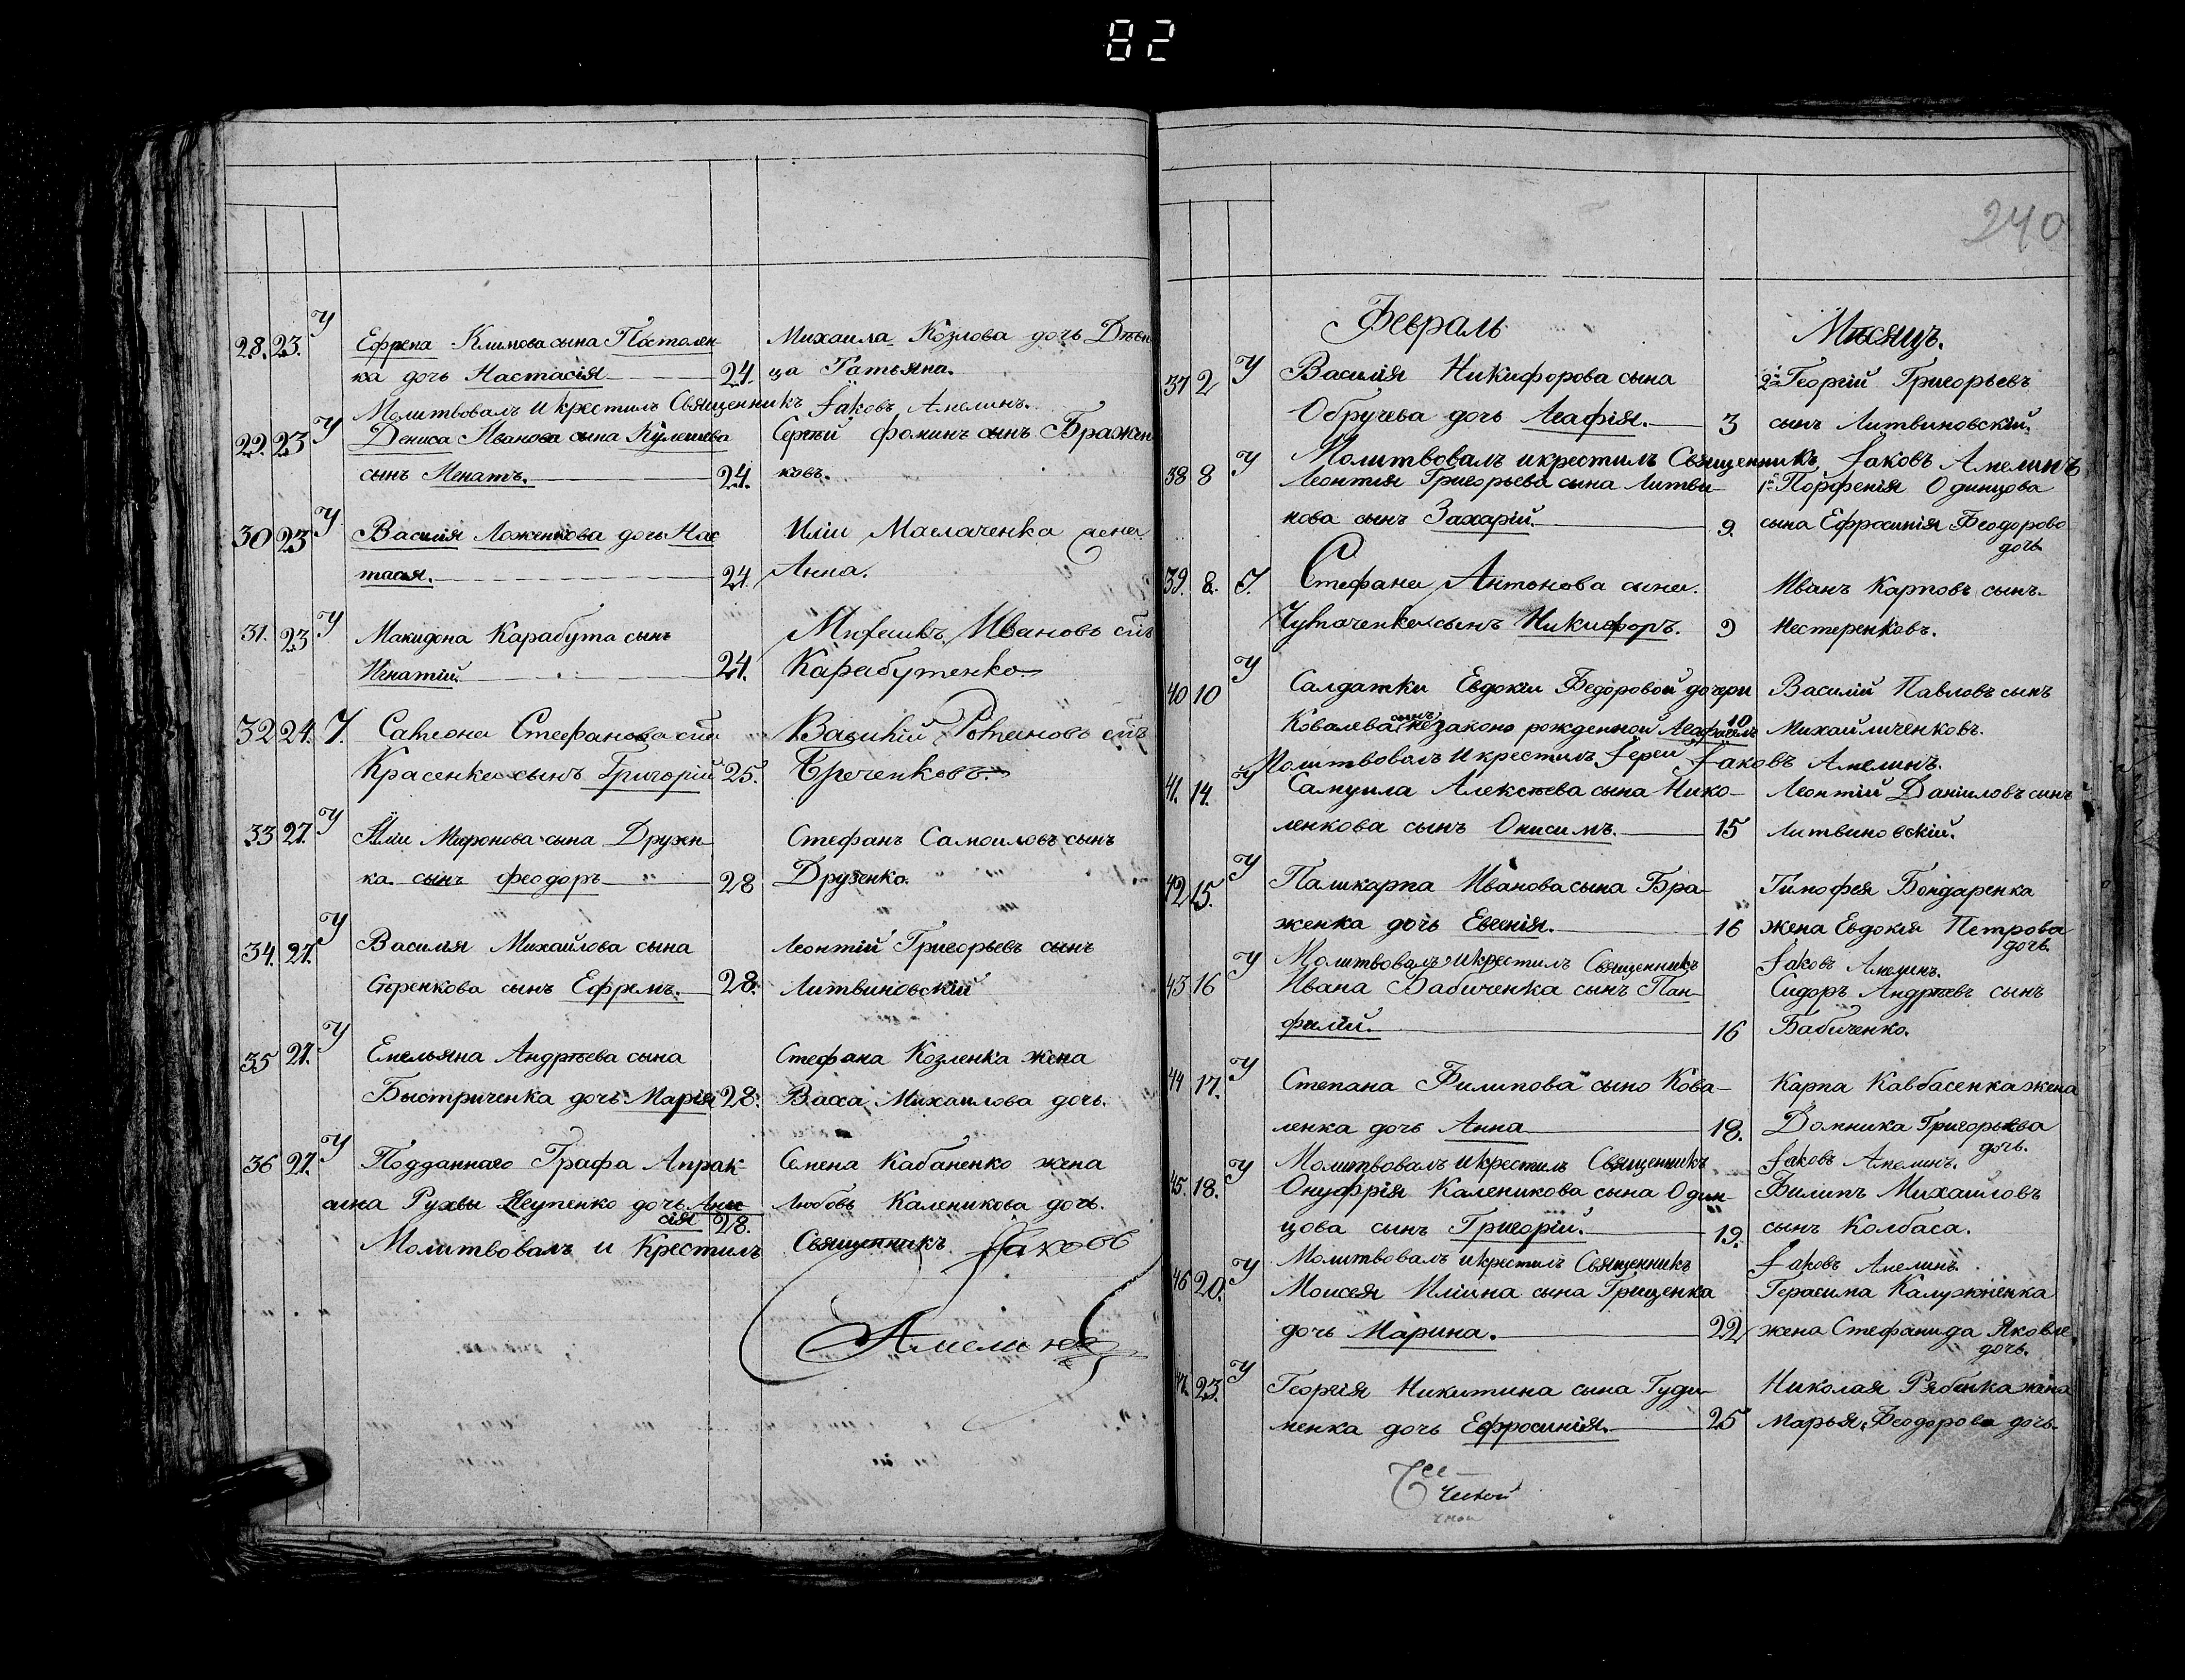 82
28. 23. У Ефрема Климова сына Постолен-
ка дочь Настасія 24. Михаила Козлова дочь Дѣви
ца Татьяна.
Молитвовалъ и крестилъ Священникъ Іаковъ Амелинъ.
22. 23 У Дениса Иванова сына Кулешева Сергѣй Фоминъ сынъ Бражен
сынъ Игнатъ. 24. ковъ.
30 23 У Василія Ложенкова дочь Нас Иліи Маслаченка жена
тасія. 24. Анна.
31. 23 У Макидона Карабута сынъ Михаилъ Ивановъ сынъ
Игнатій. 24. Карабутенко
32 24. У. Самсона Стефанова сына Василій Романовъ
Красенка сынъ Григорій 25. Бреченковъ.
33 27. У Иліи Миронова сына Друзен- Стефанъ Самоиловъ сынъ
ка сынъ Феодоръ 28 Друзенко.
34. 27. У Василія Михайлова сына Леонтій Григорьевъ сынъ
Сѣренкова сынъ Ефремъ. 28. Литвиновскій
35 27. У Емельяна Андрѣева сына Стефана Козленка жена
Быстриченка дочь Марія 28. Васса Михаилова дочь.
36 27. У Подданнаго Графа Апрак- Семена Кабаненко жена
сина дочь Ани Любовь Каленикова дочь.
сія 28.
Молитвовалъ и Крестилъ Священникъ Іаковъ
Амелинъ
240
Февраль Мѣсяцъ.
37 2 У Василія Никифорова сына Георгій Григорьевъ
Обручева дочь Агафія. 3 сынъ Литвиновскій.
Молитвовалъ и крестилъ Священникъ Іаковъ Амелинъ
38 8 У Леонтія Григорьева сына Литви- Порфенія Одинцова
нова сынъ Захарій. 9. сына Ефросинія Феодорова
дочь
39. 8. У. Стефана Антонова сына Иванъ Карповъ сынъ
Чутаченка сынъ Никифоръ. 9 Нестеренковъ.
40 10 У Салдатки Евдокіи Федоровой дочери Василій Павловъ сынъ
Ковалева сынъ незаконо рожденной 10 Михайличенковъ.
Молитвовалъ и крестилъ Іерей Іаковъ Амелинъ.
41. 14. У Самуила Алексѣева сына Нико- Леонтій Даніиловъ сынъ
ленкова сынъ Онисимъ. 15 Литвиновскій.
42 15. У Паликарпа Иванова сына Бра- Тимофея Бондаренка
женка дочь Евгенія. 16 жена Евдокія Петрова
дочь.
Молитвовалъ и крестилъ Священникъ Іаковъ Амелинъ.
43 16 У Ивана Бабиченка сынъ Пан- Сидоръ Андрѣевъ сынъ
филій. 16 Бабиченко.
44 17. У Степана Филипова сына Кова- Карпа Кавбасенка жена
ленка дочь Анна 18. Домника Григорьева
дочь.
Молитвовалъ и крестилъ Священникъ Іаковъ Амелинъ.
45. 18. У Онуфрія Каленикова сына Один- Филипъ Михаиловъ
цова сынъ Григорій. 19. сынъ Колбаса.
Молитвовалъ и крестилъ Священникъ Іаковъ Амелинъ.
46 20. У Моисея Иліина сына Грищенка Герасима Калужненка
дочь Марина. 22 жена Стефанида Яковле
дочь.
47. 23. У Георгія Никитина сына Гуди- Николая Рябенка жена
менка дочь Ефросинія. 25 Марья Феодорова дочь